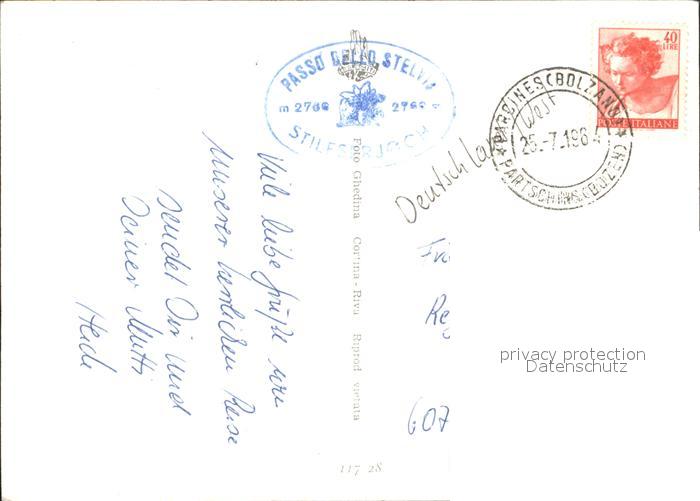 PASSO DELLO STELVIO
m 2760 2760 m
STILFSERJOCH
40
LIRE
POSTE ITALIANE
PARCINES (BOLZANO)
25.-7.1964
PARTSCHINS (BOZEN)
Deutschland / West
Viele liebe Grüße von
unserer herrlichen Reise
sendet Dir und
Deiner Mutti
Heidi
Foto Ghedina Cortina - Riva Riprod vietata
117 28
Fr
Re
607
privacy protection
Datenschutz